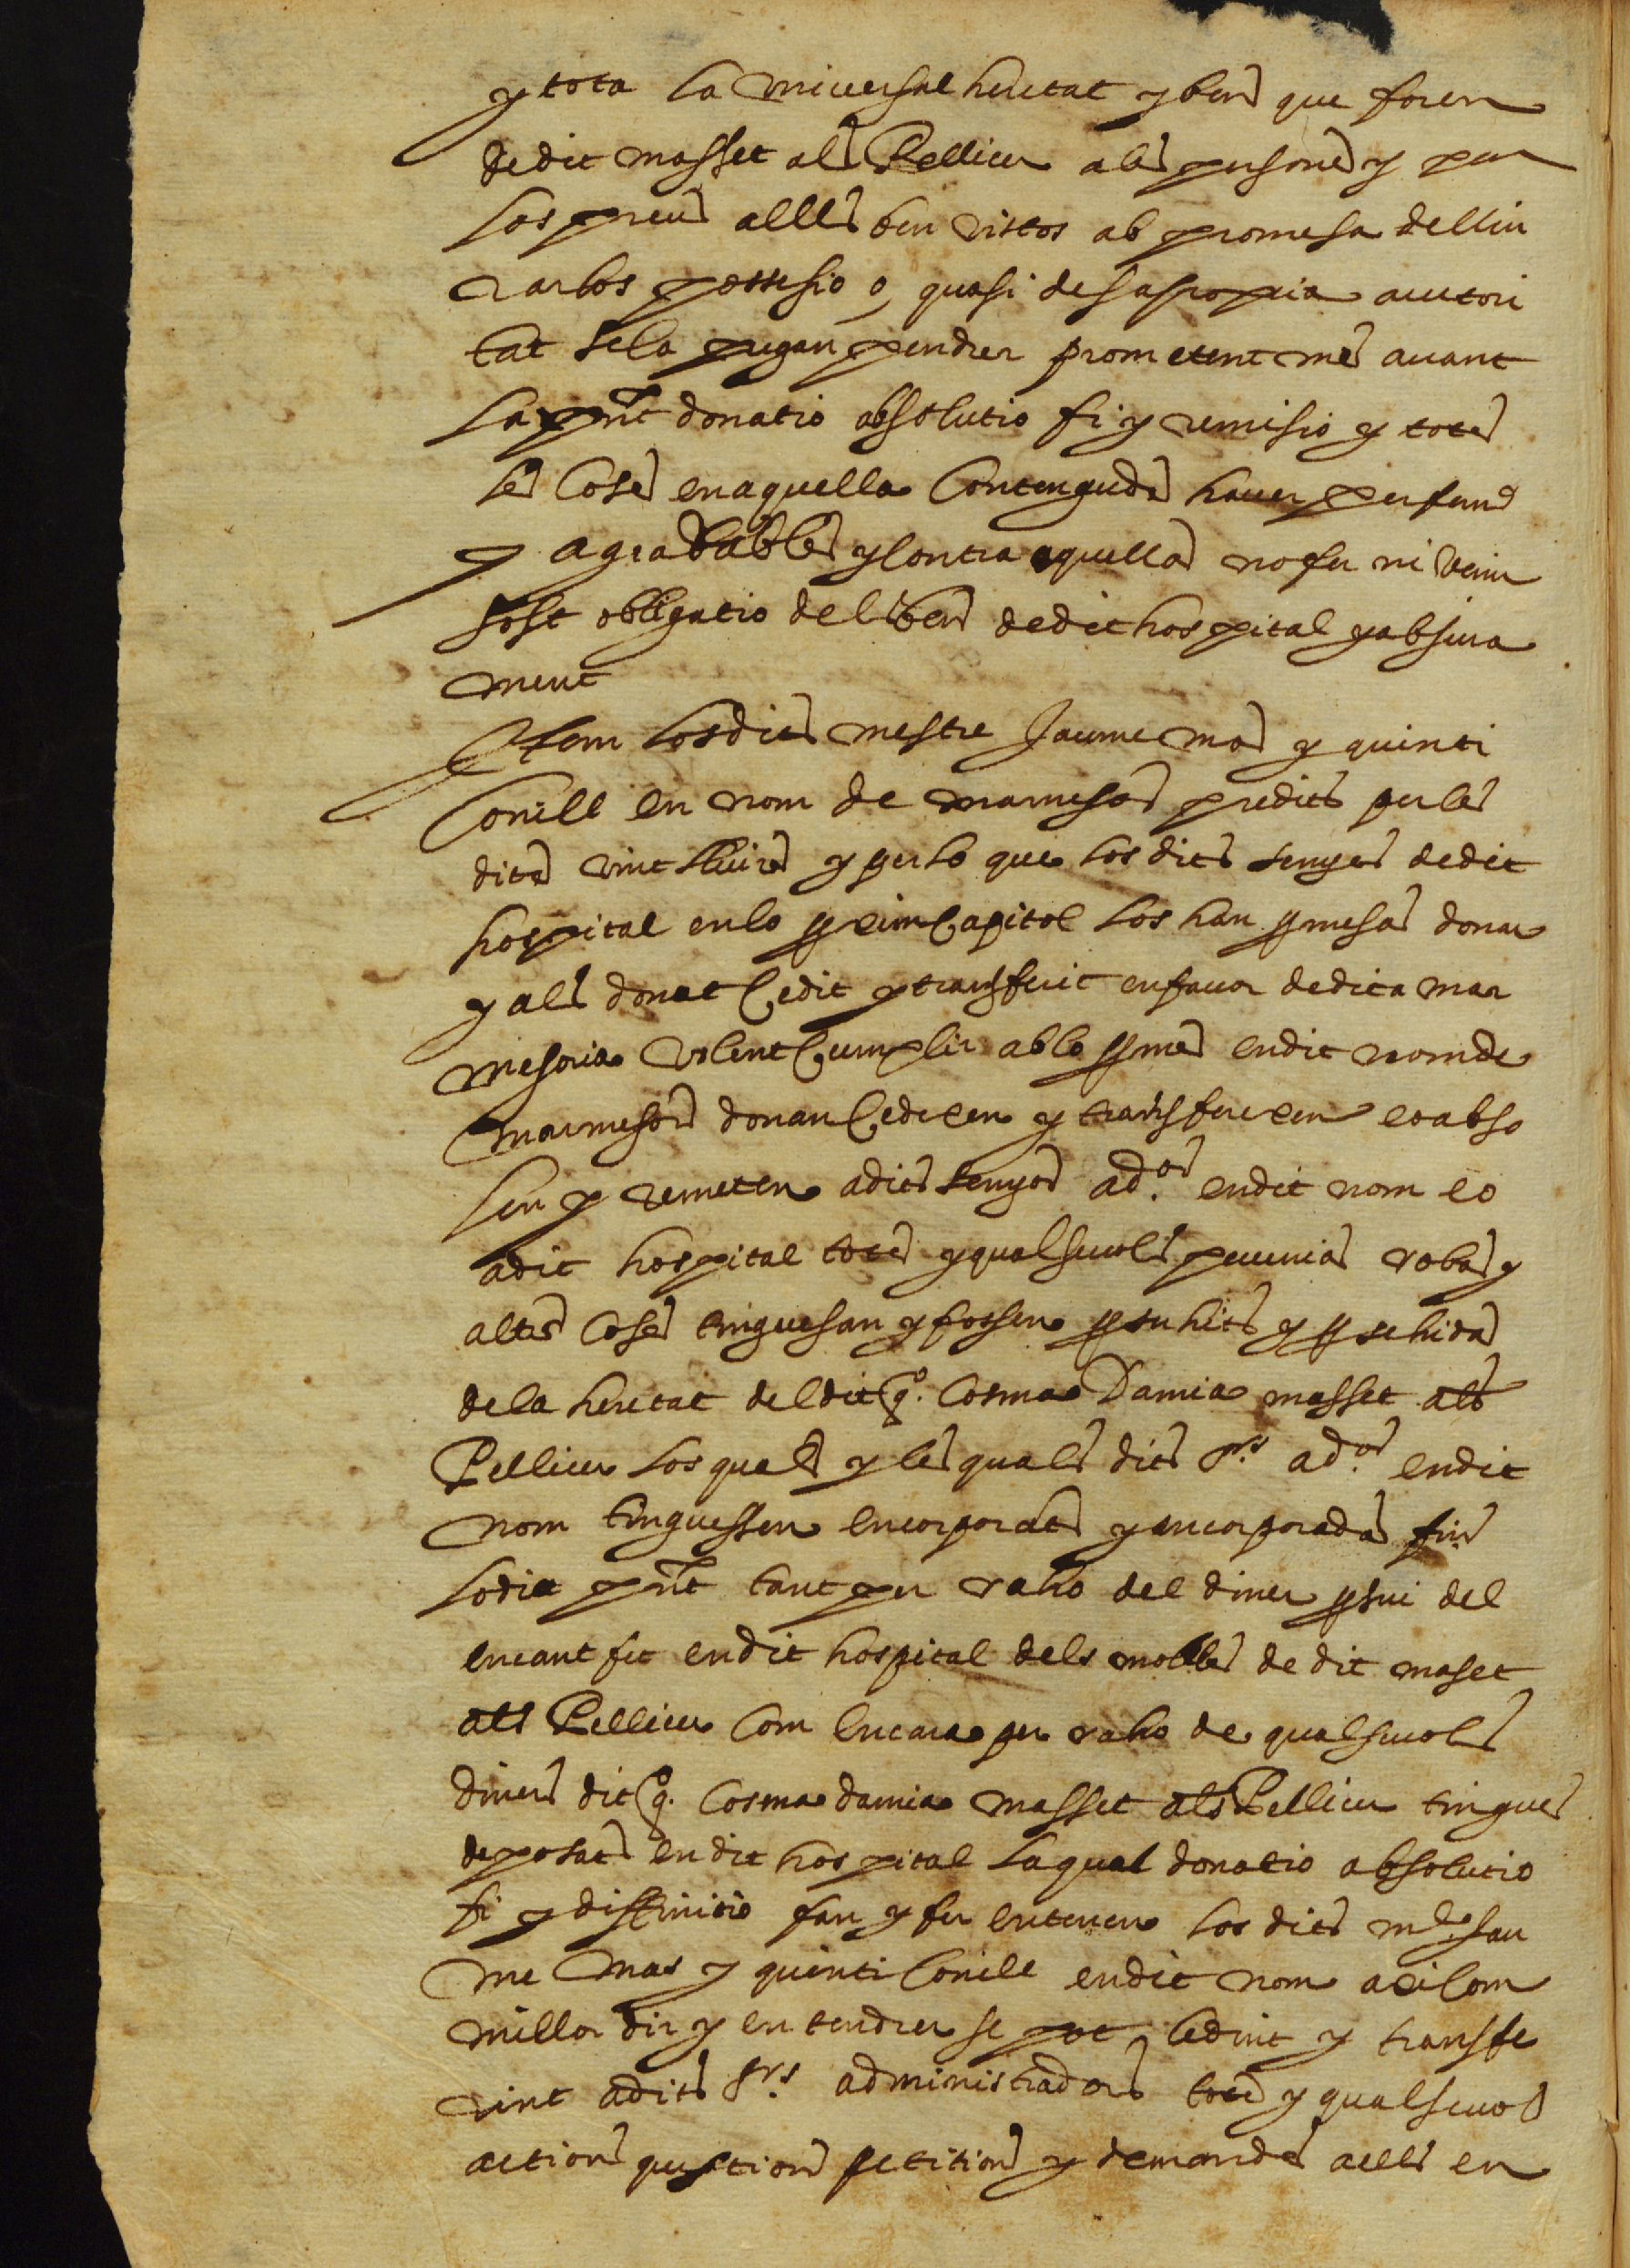 y tota la universal heretat y bens que foren
de dit masset als Pellicer a les persones y per
los preus a ells ben vistos ab promesa de lliu
rarlos possessio o, quasi de sa propia auctori
tat se la pugan pendrer prometent mes avant
la pnt donatio absolutio fi y remisio y totes
les coses en aquella contengudes haver per fermes
y agradables y contra aquellas no fer ni venir
sost obligatio dels bens de dit hospital y ab jura
ment
Item los dits mestre Jaume mas y quinti
Conill en nom de marmesos predits per les
dites vint lliures y per lo que los dits senyors de dit
hospital en lo primer capitol los han promesas donar
y als donat cedit y transferit en favor de dita mar
mesoria volent cumplir ab lo promes en dit nom de
marmesors donan cedexen y transferexen eo abso
len y remeten a dits senyors ad.ors en dit nom eo
a dit hospital totes y qualsevols pecunias robas y
altres coses tinguesan y fossen prohits y prohidas
de la heretat del dit q.º Cosma Damia masset als
Pellicer los quals y les quals dits Srs ad.ors en dit
nom tinguessen encorporats y encorporadas fins
lo dia pnt tant per raho del diner prohi del
encant fet en dit hospital dels mobles de dit maset
als Pellicer com encara per raho de qualsevols
diners dit q.º Cosma damia masset als Pellicer tingues
deposats en dit hospital la qual donatio absolutio
fi y diffinitio fan y fer entenen los dits m.e Jau
me Mas y quinti Conill en dit nom axi com
millor dir y entendrer se pot, cedint y transfe
rint a dits Srs administradors totes y qualsevols
actions questions petitions y demandes a ells en